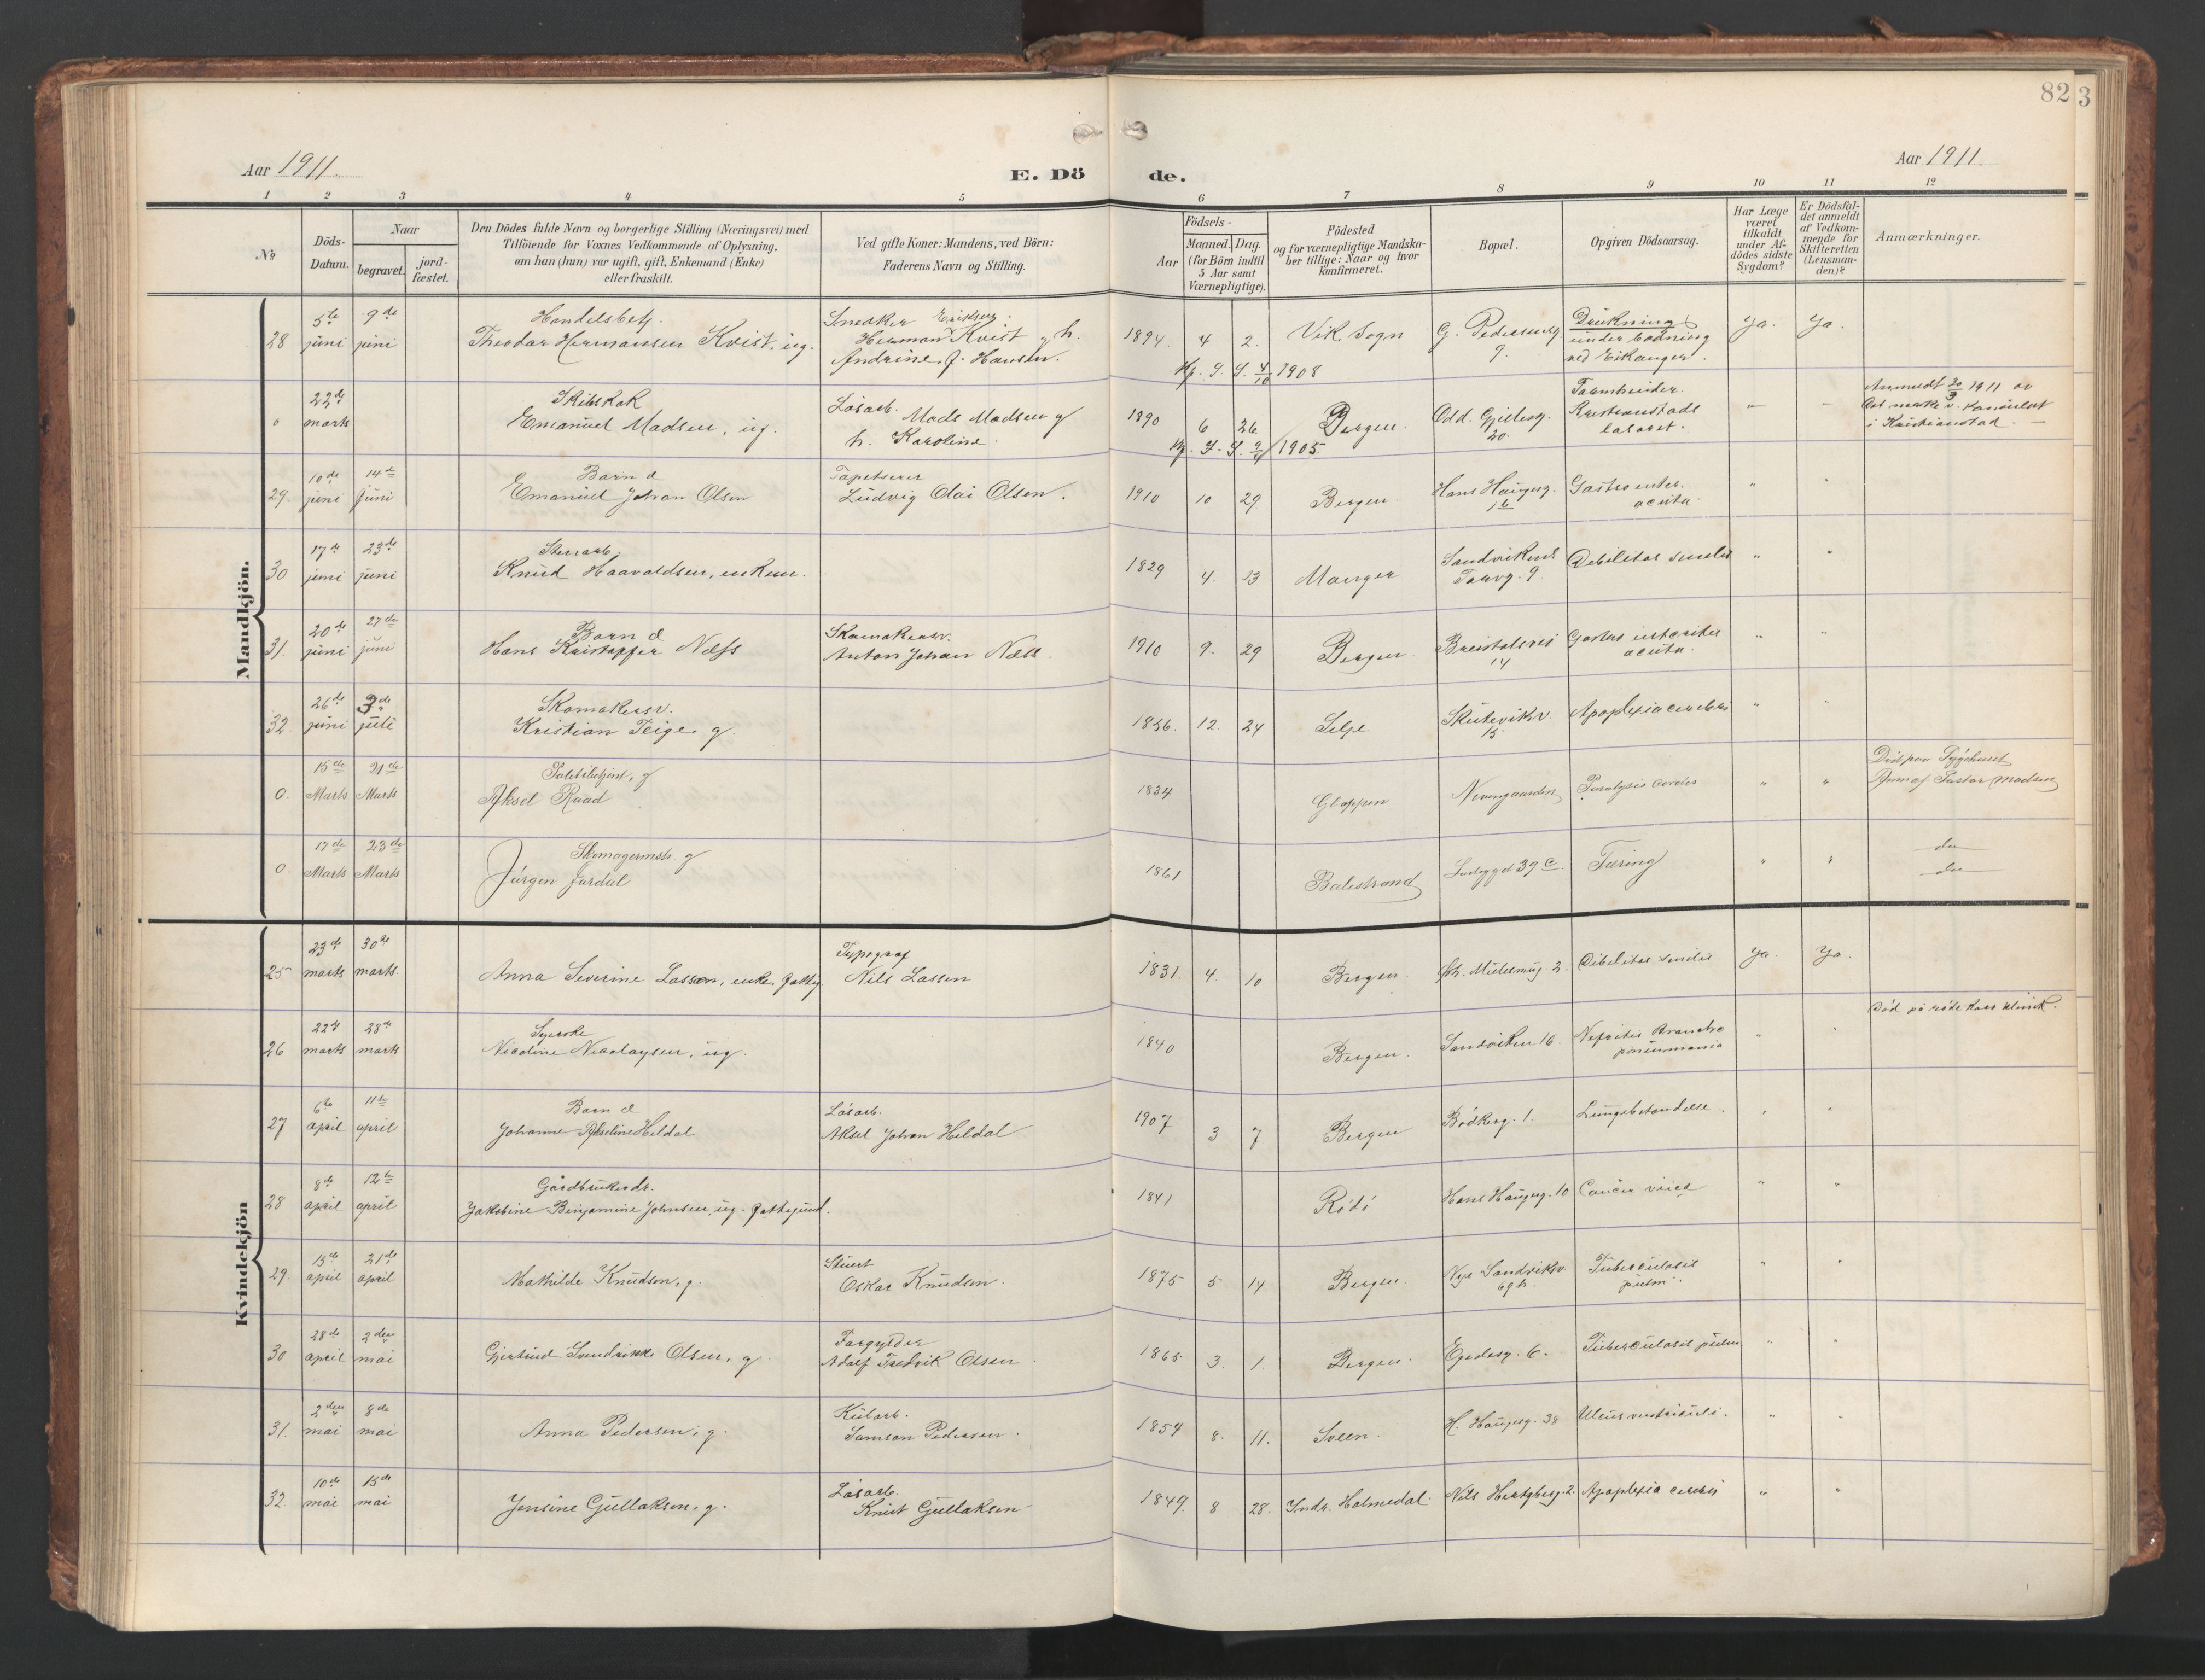 82 3
Aar 1911
E. Dö de.
Aar 1911
1 2 3 4 5 6 7 8 9 10 11 12
No
Döds-
Datum.
Naar
begravet.
jord-
fæstet.
Den Dödes fulde Navn og borgerlige Stilling (Næringsvei) med
Tilföiende for Voxnes Vedkommende af Oplysning,
om han (hun) var ugift, gift, Enkemand (Enke)
eller fraskilt.
Ved gifte Koner: Mandens, ved Börn:
Faderens Navn og Stilling.
Födsels-
Aar
Maaned.
Dag.
(for Börn indtil
5 Aar samt
Værnepligtige).
Födested
og for værnepligtige Mandska-
ber tillige: Naar og hvor
konfirmeret.
Bopæl.
Opgiven Dödsaarsag.
Har Læge
været
tilkaldt
under Af-
dödes sidste
Sygdom?
Er Dödsfal-
det anmeldt
af Vedkom-
mende for
Skifteretten
(Lensman-
den)?
Anmærkninger.
Mandkjön.
28
5te juni
9de juni
Handelsbetj.
Theodor Hermansen Kvist, ug.
Snedker Eriksen
Herman Kvist og h.
Andrine f. Hansen.
1894. 4 2.
Vik, Sogn
G. Pedersens
9.
Drukning
under badning
ved Eikanger.
Ja. Ja.
4/10 1908
0
22de marts
Skibskok
Emanuel Madsen, ug.
Løsarb. Mads Madsen og
h. Karoline.
1890 6 26
Bergen.
1905
Odd. Gjelesg.
20.
Kristianstads
lasaret.
1911
i Kristianstad
29.
10de juni
14de juni
Barn d
Emanuel Johan Olsen
Tapetserer
Ludvig Olai Olsen.
1910 10 29
Bergen
Hans Haugesg.
Gastroenter.
acuta.
" "
30
17de juni
23de juni
Knud Haavaldsen, enkem.
1829 4. 13
Manger
Sandvikens
Torvg. 9.
Debilitas senilis
" "
31.
20de juni
27de juni
Barn d
Hans Kristoffer Næss
Skomakersv.
Anton Johan Næss.
1910 9. 29
Bergen.
Breistølsvei
14
acuta.
" "
32.
26de juni
3de juli
Skomakersv.
Kristian Teige. g.
1856. 12. 24
Selje
Skutevikv.
15.
Apoplexia cerebri
" "
0.
15de Marts
21de Marts
Politibetjent, g
Aksel Raad
1834
Gloppen
Nevengaarden
Paralysis cordis
" "
Død paa Sygehuset
Anm. af Pastor Madsen
0.
17de Marts
23de Marts
Skomagermstr. g
Jürgen Jordal
1861
Balestrand
39 c.
Tæring
" "
do
do
Kvindekjön
25
23de marts
30te marts.
Anna Severine Lassen, enke, fattig
Typograf
Nils Lassen
1831. 4. 10
Bergen.
Debilitas senilis
Ja. Ja.
26
22de marts
28de marts
Syerske
Nicoline Nicolaysen, ug.
1840
Bergen.
Sandviken 16.
Nefritis Broncho
pneumonia
"
Død på røde kors klinik.
27
6te april
11te april
Barn d
Johanne Akseline Heldal
Løsarb.
Aksel Johan Heldal
1907 3 7
Bergen
Bødkerg. 1.
Lungebetændelse.
28
8de april
12te april
Gårdbrukerdr.
Jakobine Benjamine Johnsen, ug. fattigund.
1841
Rödö
Hans Haugesg. 10
Cancer
" "
29.
15de april
21de april
Mathilde Knudsen, g.
Stuert
Oskar Knudsen.
1875 5 14
Bergen.
Nye Sandviksv.
69 b.
Tuberculosis
pulm.
" "
30
28de april
2den mai
Gjertrud Sendrikke Olsen, g.
Forgylder
Adolf Fredrik Olsen
1865 3. 1.
Bergen.
Egedesg. 6.
Tuberculosis pulm.
" "
31.
2den mai
8de mai
Anna Pedersen, g.
Kularb.
Samson Pedersen.
1854 8. 11.
Sveen.
H. Haugesg. 38
Ulcus ventriculi.
" "
32
10de mai
15de mai
Jensine Gullaksen, g.
Løsarb.
Knut Gullaksen
1849. 8 28.
Indr. Holmedal.
Nils Hertzbergg. 2.
Apoplexia cerebri
" "